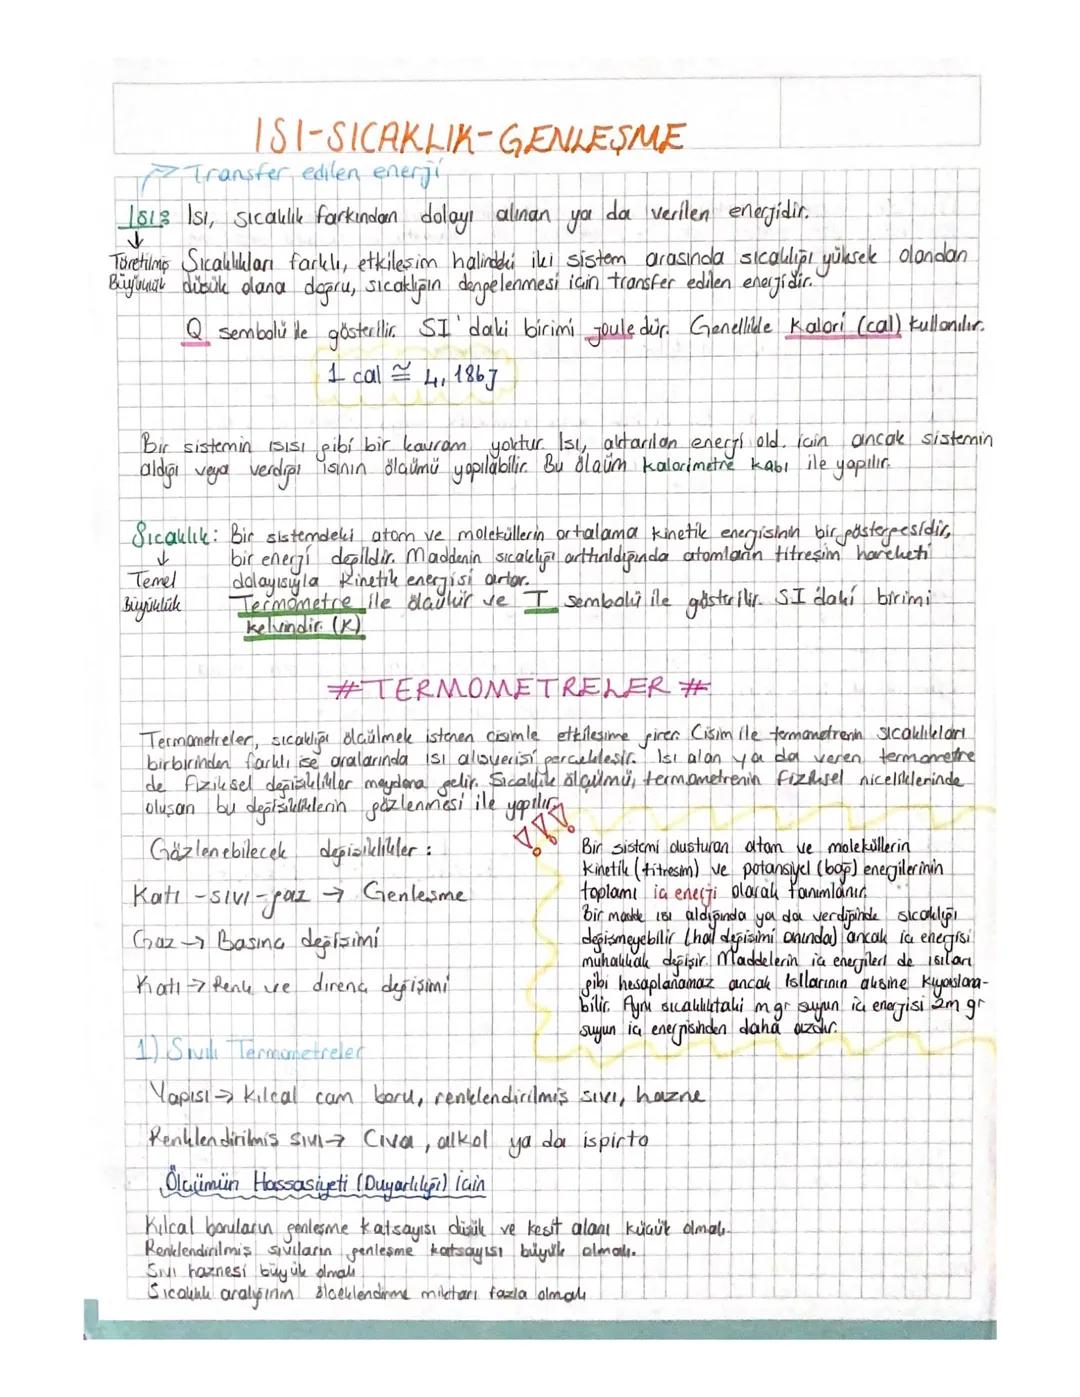 ISI-SICAKLIK-GENLEŞME
Transfer edilen enerji
Isı: Isı, sıcaklık farkından dolayı alınan ya da verilen enerjidir.
Türetilmiş Büyüklük
Sıcaklıkları farklı, etkileşim halindeki iki sistem arasında sıcaklığı yüksek olandan
düşük olana doğru, sıcaklığın dengelenmesi için transfer edilen enerjidir.
Q sembolü ile gösterilir. SI'daki birimi Joule dür. Genellikle Kalori (cal) kullanılır.
1 cal ≅ 4,186J
Bir sistemin ısısı gibi bir kavram yoktur. Isı, aktarılan enerji old. için ancak sistemin
aldığı veya verdiği ısının ölçümü yapılabilir. Bu ölçüm kalorimetre kabı ile yapılır.
Sıcaklık: Bir sistemdeki atom ve moleküllerin ortalama kinetik enerjisinin bir göstergesidir,
bir enerji değildir. Maddenin sıcaklığı arttırıldığında atomların titreşim hareketi
dolayısıyla kinetik enerjisi artar.
Temel
Büyüklük
Termometre ile ölçülür ve T sembolü ile gösterilir. SI'daki birimi
kelvindir. (K)
# TERMOMETRELER #
Termometreler, sıcaklığı ölçülmek istenen cisimle etkileşime girer. Cisim ile termometrenin sıcaklıkları
birbirinden farklı ise aralarında ısı alışverişi gerçekleşir. Isı alan ya da veren termometre
de fiziksel değişiklikler meydana gelir. Sıcaklık ölçümü, termometrenin fiziksel niceliklerinde
oluşan bu değişikliklerin gözlenmesi ile yapılır.
!!!
Gözlenebilecek değişiklikler :
Katı -sıvı-gaz → Genleşme
Gaz → Basınç değişimi
Katı → Renk ve direnç değişimi
Bir sistemi oluşturan atom ve moleküllerin
kinetik (titreşim) ve potansiyel (bağ) enerjilerinin
toplamı iç enerji olarak tanımlanır.
Bir madde ısı aldığında ya da verdiğinde sıcaklığı
değişmeyebilir (hal değişimi anında) ancak iç enerjisi
muhakkak değişir. Maddelerin iç enerjileri de ısıları
gibi hesaplanamaz ancak ısılarının aksine kıyaslana-
bilir. Aynı sıcaklıktaki m gr suyun iç enerjisi 2m gr
suyun iç enerjisinden daha azdır.
1) Sıvılı Termometreler
Yapısı → Kılcal cam boru, renklendirilmiş sıvı, hazne
Renklendirilmiş sıvı → Civa, alkol ya da ispirto
Ölçümün Hassasiyeti (Duyarlılığı) için
Kılcal boruların genleşme katsayısı düşük ve kesit alanı küçük olmalı.
Renklendirilmiş sıvıların genleşme katsayısı büyük olmalı.
Sıvı haznesi büyük olmalı
Sıcaklık aralığının ölçeklendirme miktarı fazla olmalı